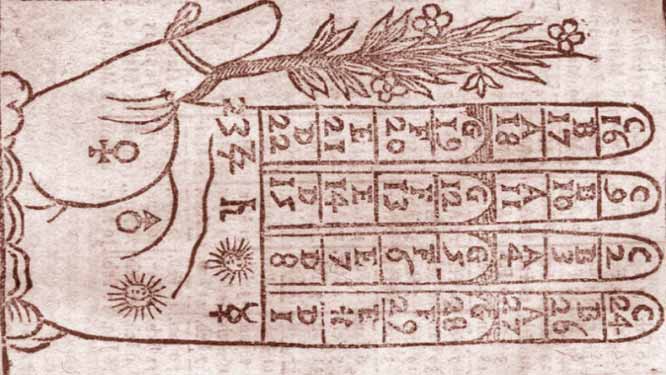 C 16 C 9 C 2 C 24
B 17 B 10 B 3 B 26
A 18 A 11 A 4 A 27
G 19 G 12 G 5 G 28
F 20 F 13 F 6 F 29
E 21 E 14 E 7 E *
D 22 D 15 D 8 D 1
23 ♃ ♄ ☿
♀
♂